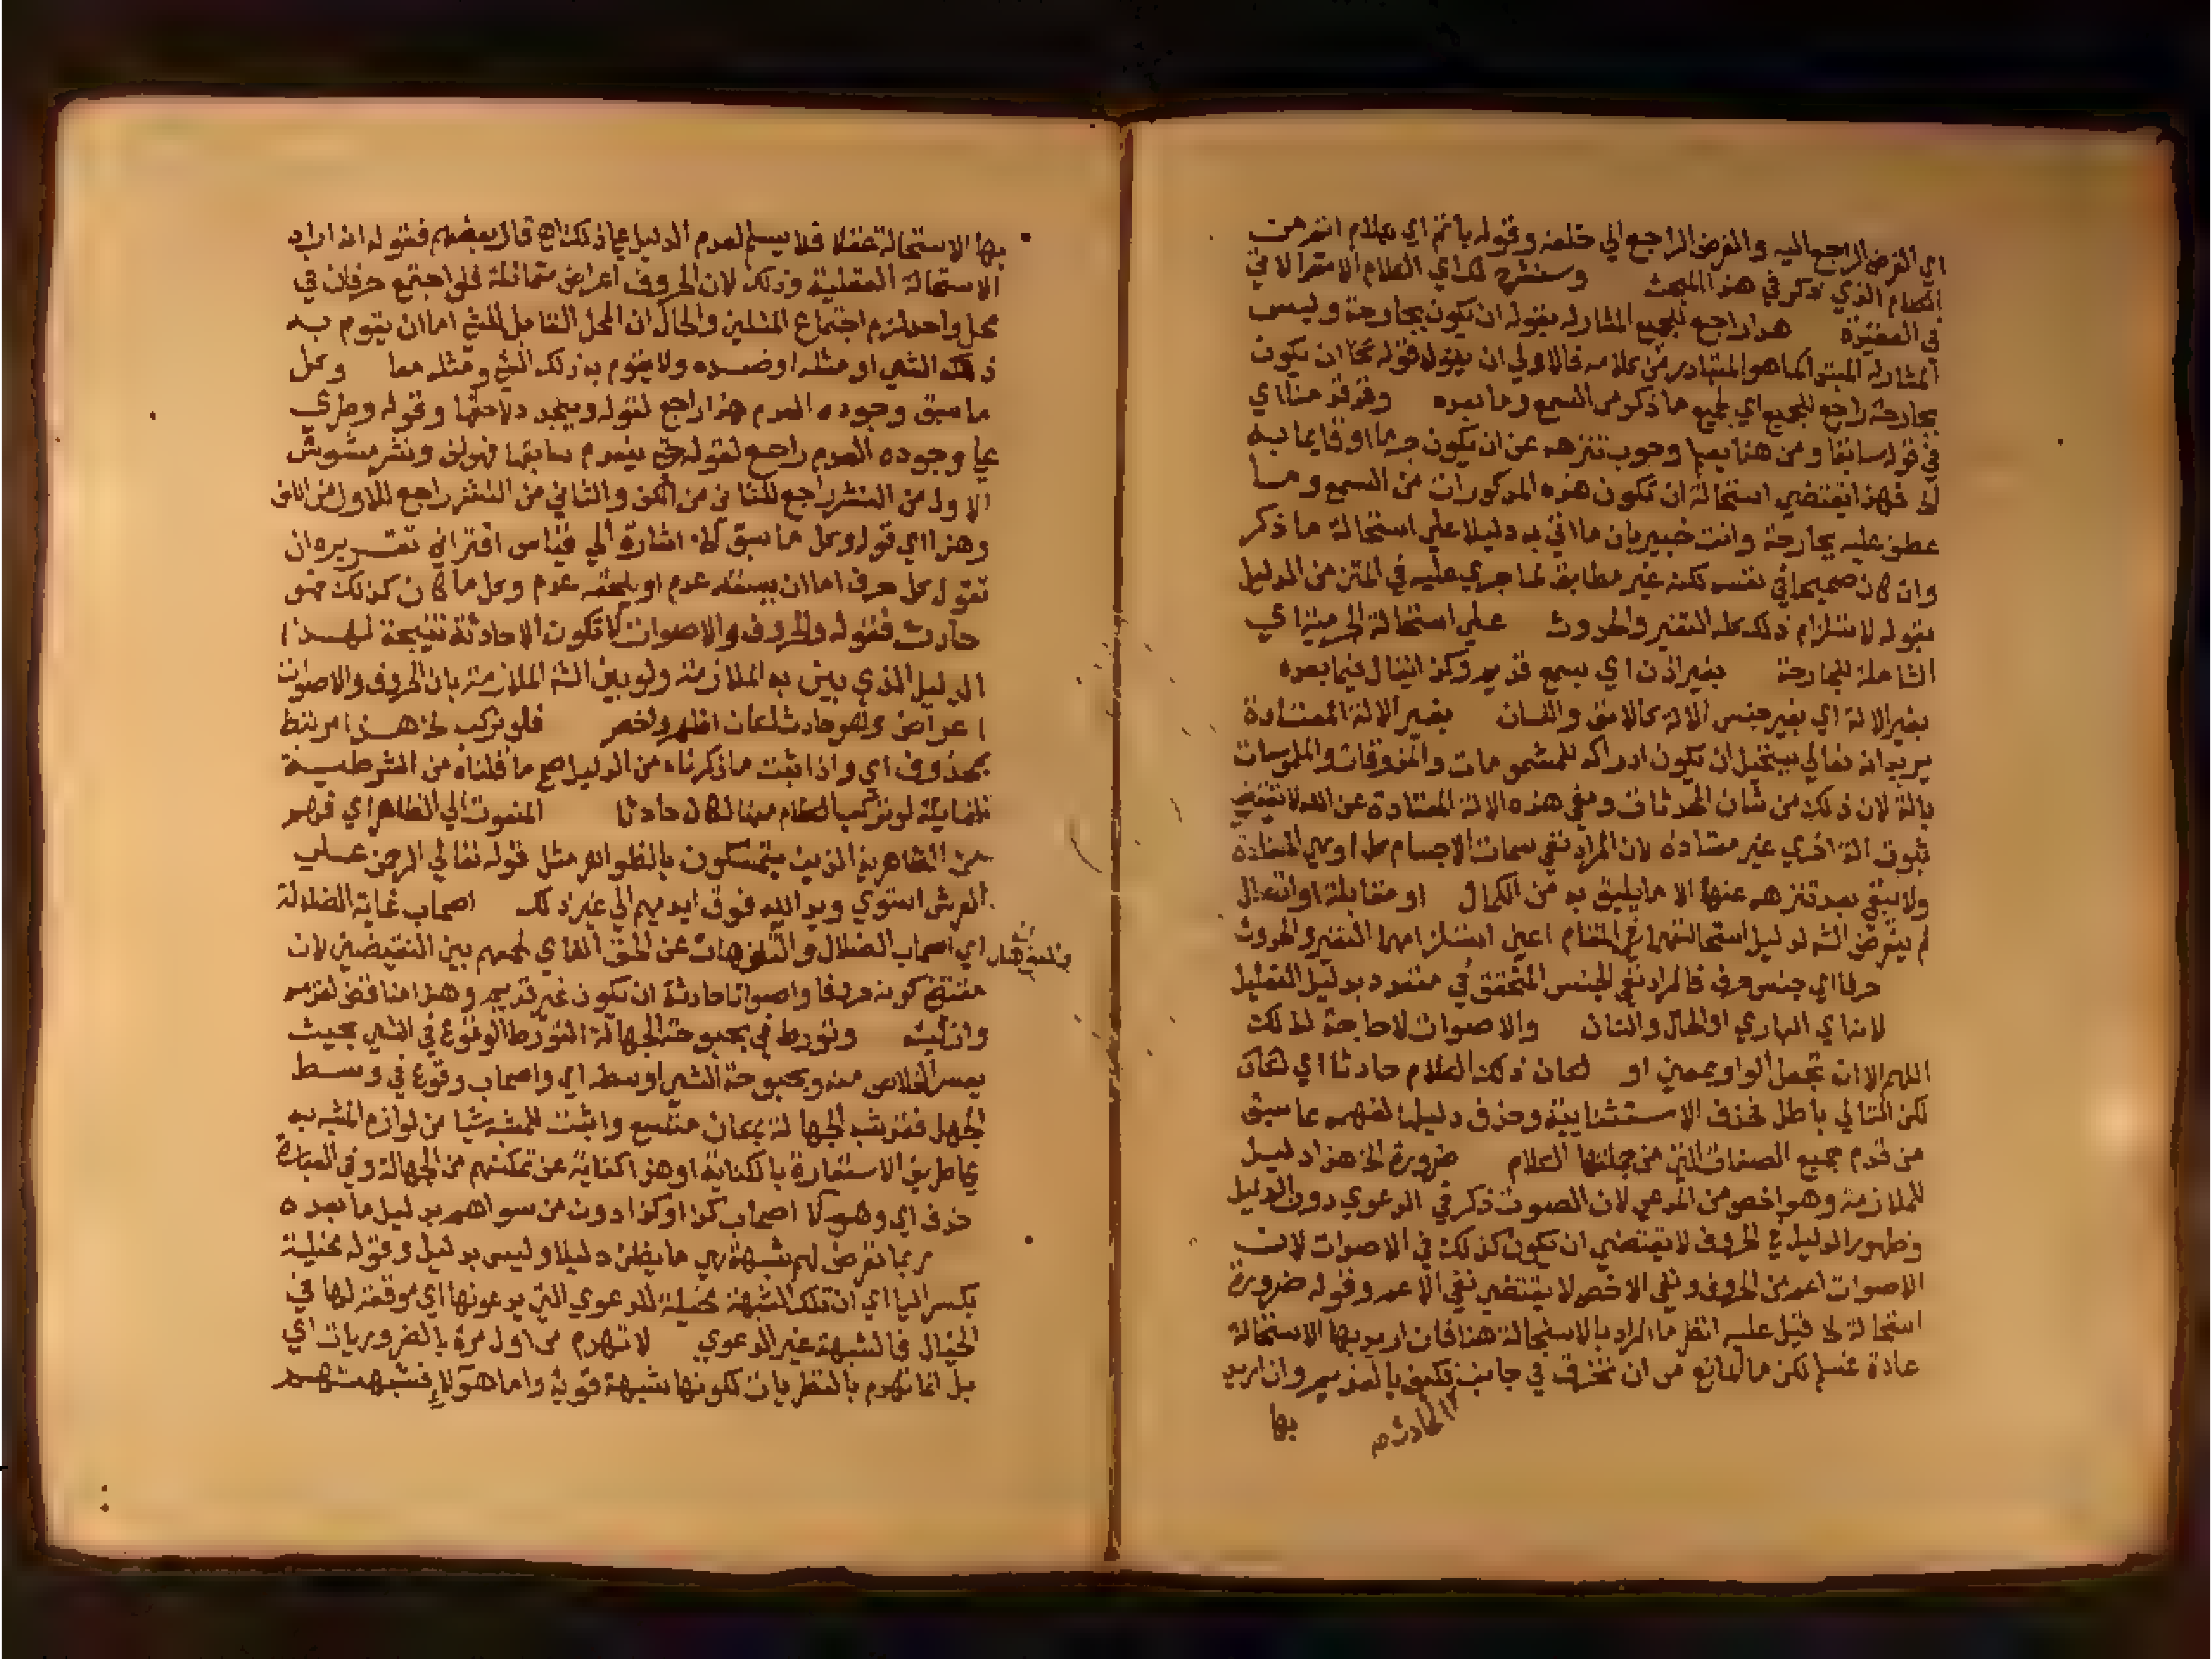 اي الغرض الراجع اليه والغرض الراجع الي خلقه وقوله ياتم اي بكلام اتم من
الكلام الذي ذكر في هذا المبحث وسنشرح لك اي الكلام الا متوالا في
في العقيدة هذا راجع للجميع المشار له بقوله ان يكون بجارحة وليس
المشار له المبتدا كما هو المتبادر من كلامه فالاولي ان يقول قوله محال ان يكون
بجارحة راجع للجميع اي لجميع ما ذكر من السمع وما بعده وقد قدمنا اي
في قوله سابقا ومن هنا يعلم وجوب تنزهه عن ان يكون جرما او قايما به
الخ فهذا يقتضي استحالة ان تكون هذه المذكورات من السمع وما
عطف عليه بجارحة وانت خبير بان ما اتي به دليلا علي استحالة ما ذكر
وان كان صحيحا في نفسه لكنه غير مطابق لما جري عليه في المتن من الدليل
بقوله لاستلزام ذلك كله التغير والحدوث علي استحالة الجرمية اي
الشاملة للجارحة بغير اذن اي بسمع قديم وكذا يقال فيما بعده
بغير الالة اي بغير جنس الالة كالانف واللسان بغير الالة المعتادة
يريد انه تعالي يستحيل ان يكون ادراكه للمشمومات والمذوقات والملموسات
بالة لان ذلك من شان المحدثات ونفي هذه الالة المعتادة عن الله لا يقتضي
ثبوت الة اخري غير معتادة لان المراد نفي سمات الاجسام
ولا يبقي بعد تنزهه عنها الا ما يليق به من الكمال او مقابلة او اتصال
لم يتعرض الشه لدليل استحالتهما في المقام اعني استلزامهما التغير والحدوث
حرفا اي جنس حرف فالمراد نفي الجنس المتحقق في متعدد بدليل التعليل
لانه اي الباري او الحال والشان والاصوات لا حاجة لذلك
اللهم الا ان تجعل الواو بمعني او لكان ذلك الكلام حادثا اي لكان
لكن التالي باطل فحذف الاستثنايية وحذف دليلها لفهمه مما سبق
من قدم جميع الصفات التي من جملتها الكلام ضرورة الخ هذا دليل
للملازمة وهو اخص من المدعي لان الصوت ذكر في الدعوي دون الدليل
وظهور الدليل في الحروف لا يقتضي ان يكون كذلك في الاصوات لان
الاصوات اعم من الحروف ونفي الاخص لا يقتضي نفي الاعم وقوله ضرورة
استحالة الخ قيل عليه انظر ما المراد بالاستحالة هنا فان اريد بها الاستحالة
عادة فمسلم لكن ما المانع من ان تنخرق في جانب بالقديم وان اريد
الحادث
بها
بها الاستحالة عقلا فلا يسلم لعدم الدليل علي ذلك اه قال بعضهم فقوله انه اراد
الاستحالة العقلية وذلك لان الحروف اعراض متماثلة فلو اجتمع حرفان في
محل واحد لزم اجتماع المثلين والحال ان المحل القابل للشي اما ان يقوم به
ذلك الشي او مثله او ضده ولا يقوم به ذلك الشي ومثله معا وكل
ما سبق وجوده العدم هذا راجع لقوله ويتجدد لاحقها وقوله وطري
علي وجوده العدم راجع لقوله حتي ينعدم سابقها فهو لف ونشر مشوش
الاول من النشر راجع للثاني من اللف والثاني من النشر راجع للاول من اللف
وهذا اي قوله وكل ما سبق الخ اشارة الي قياس اقتراني تقريره ان
تقول كل حرف اما ان يسبقه عدم او يلحقه عدم وكل ما كان كذلك فهو
حادث فقوله والحروف والاصوات لا تكون الا حادثة نتيجة لهذا
الدليل الذي بين به الملازمة ولو بين الشه الملازمة بان الحروف والاصوات
اعراض وكل حادث لكان اظهر واخصر فلو تركب الخ هذا مرتبط
بمحذوف اي واذا ثبت ما ذكرناه من الدليل صح ما قلناه من الشرطية
القايلة لو تركب الكلام منها لكان حادثا المنعوت الي الظاهر اي فهم
من الظاهرية الذين يتمسكون بالظواهر مثل قوله تعالي الرحمن علي
العرش استوي ويد الله فوق ايديهم الي غير ذلك اصحاب غاية الضلالة
اي اصحاب الضلال عن الحق الغاي لجمعهم بين النقيضين لان
مقتضي كونه حروفا واصواتا حادثة ان يكون غير قديم وهذا مناقض لقدمه
وازليته وتورط في بحبوحة الجهالة التورط الوقوع في الشي بحيث
يعسر الخلاص منه وبحبوحة الشي اوسطه اي واصحاب وقوع في وسط
الجهل فقد شبه الجهالة بمكان متسع واثبت للمشبه شيا من لوازم المشبه به
علي طريق الاستعارة بالكناية او هذا كناية عن تمكنهم من الجهالة وفي العبارة
حذف اي وهولا اصحاب كذا وكذا دون من سواهم بدليل ما بعده
ربما تعرض لهم شبهة هي ما يظن دليلا وليس بدليل وقوله مخيلة
بكسر اليا اي ان تلك الشبهة مخيلة للدعوي التي يدعونها اي موقعة لها في
الخيال فالشبهة غير الدعوي لا تهدم من اول مرة بالضروريات اي
بل انما تهدم بالنظريات لكونها شبهة قوية واما هولاء فشبهتهم